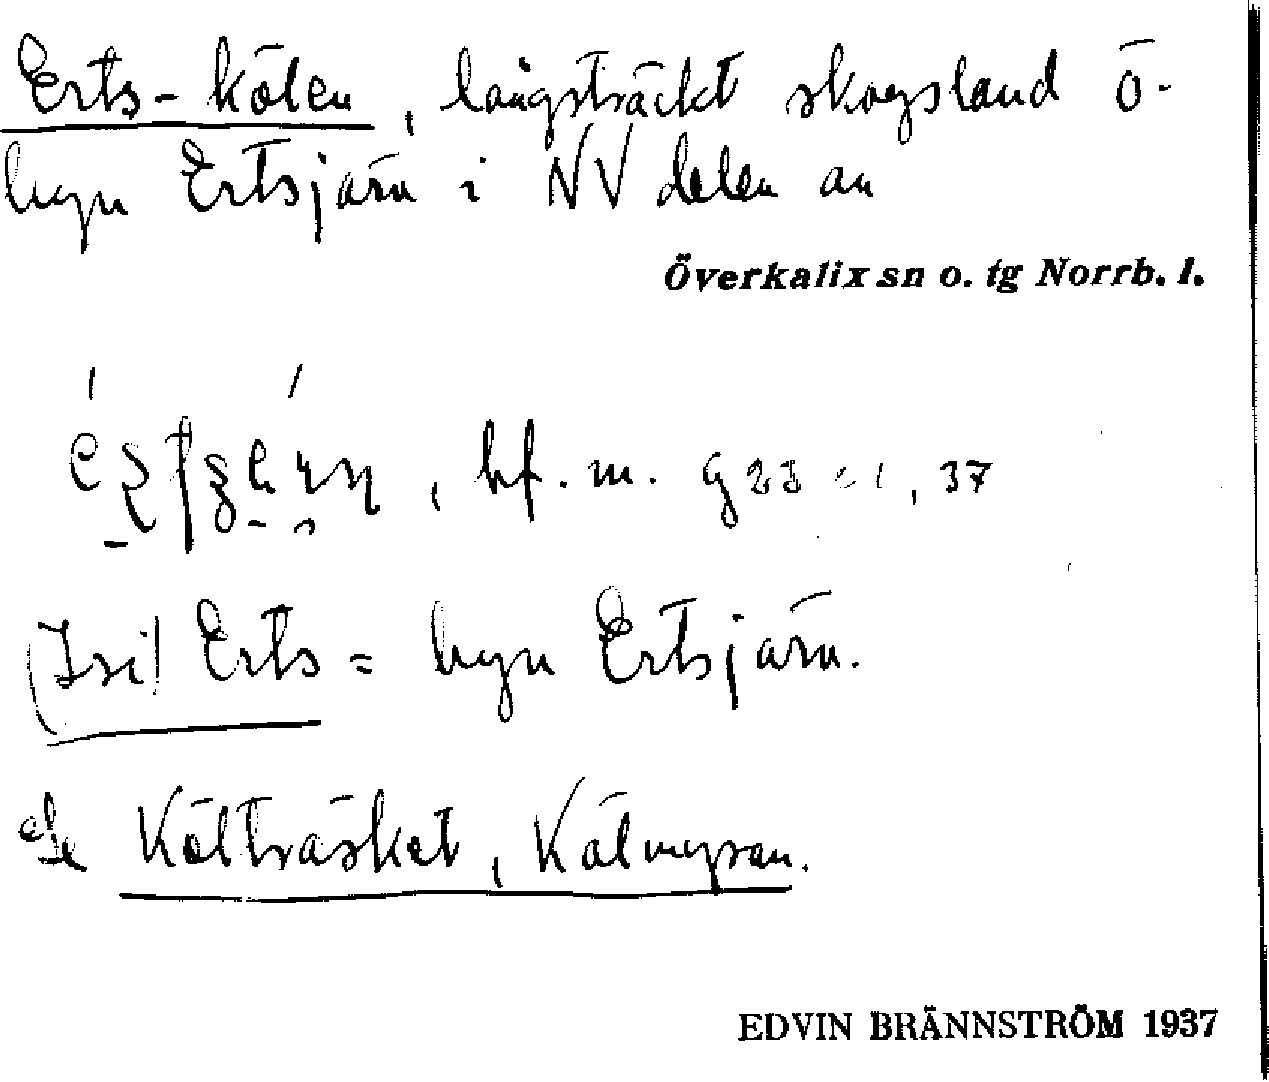 Erts-kölen, långsträckt skogsland ö.
byn Ertsjärn i NV delen av
Överkalix sn o. tg Norrb. l.
, bf. m. 37
Erts = byn Ertsjärn.
Se Költräsket, Kölmyran.
EDVIN BRÄNNSTRÖM 1937